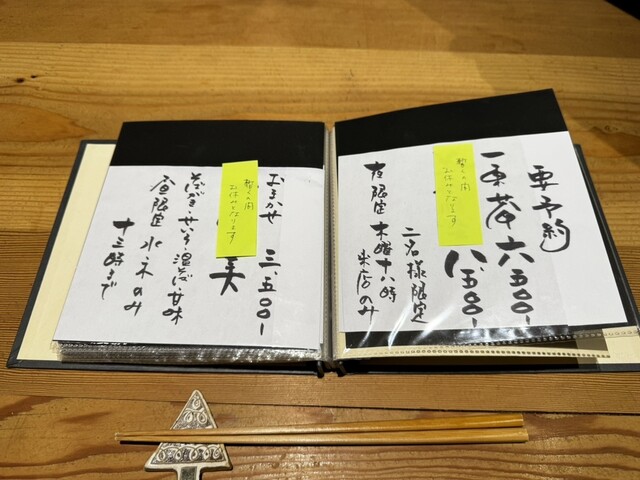 要予約
一茶 六、五〇〇ー
八、五〇〇ー
二名様限定
夜限定 木曜十八時
来店のみ
暫くの間
お休みとなります
おまかせ 三、五〇〇ー
美
そばがき・せいろ・温そば・甘味
昼限定 水・木のみ
十三時まで
暫くの間
お休みとなります